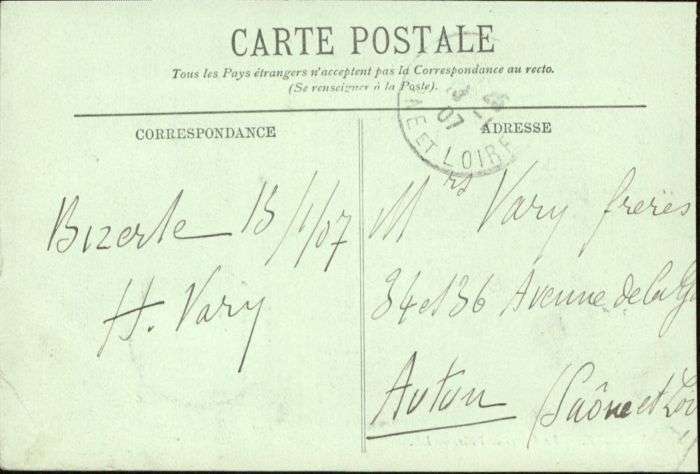 CARTE POSTALE
Tous les Pays étrangers n'acceptent pas la Correspondance au recto.
(Se renseigner à la Poste).
CORRESPONDANCE
Bizerte 15/1/07
H. Vary
ADRESSE
Mrs Vary frères
34 et 36 Avenue de la G
Autun (Saône et Loi
07
NE ET LOIRE